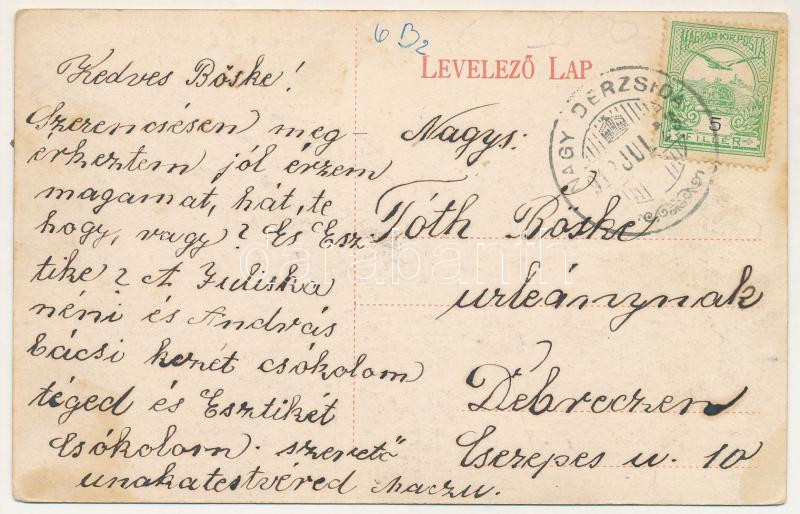 6 B2
LEVELEZŐ LAP
MAGYAR KIR. POSTA
5
FILLÉR
NAGY DERZSIDA
JUL
Kedves Böske!
Szerencsésen meg-
érkeztem jól érzem
magamat, hát, te
hogy, vagy? És Esz-
tike? A Juliska
néni és András
bácsi kezét csókolom
téged és Esztikét
Csókolom szerető
unakatestvéred
Nagys:
Tóth Böske
urleánynak
Debreczen
Cserepes u. 10
darabanth